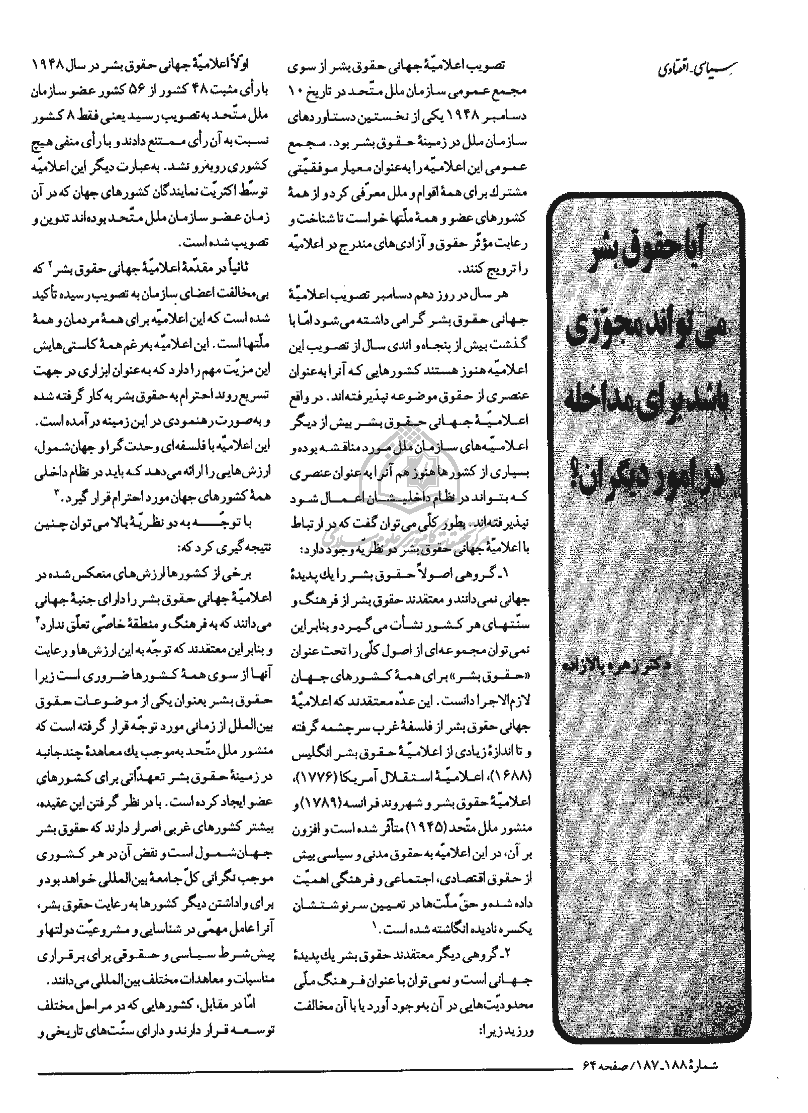 سیاسی - اقتصادی
آیا حقوق بشر
می‌تواند مجوّزی
باشد برای مداخله
در امور دیگران؟
دکتر زهره بالازاده
تصویب اعلامیّهٔ جهانی حقوق بشر از سوی
مجمع عمومی سازمان ملل متّحد در تاریخ ۱۰
دسامبر ۱۹۴۸ یکی از نخستین دستاوردهای
سازمان ملل در زمینهٔ حقوق بشر بود. مجمع
عمومی این اعلامیّه را به‌عنوان معیار موفقیّتی
مشترك برای همهٔ اقوام و ملل معرّفی کرد و از همهٔ
کشورهای عضو و همهٔ ملّتها خواست تا شناخت و
رعایت مؤثّر حقوق و آزادی‌های مندرج در اعلامیّه
را ترویج کنند.
هر سال در روز دهم دسامبر تصویب اعلامیّهٔ
جهانی حقوق بشر گرامی داشته می‌شود امّا با
گذشت بیش از پنجاه و اندی سال از تصویب این
اعلامیّه هنوز هستند کشورهایی که آنرا به‌عنوان
عنصری از حقوق موضوعه نپذیرفته‌اند. در واقع
اعلامیّهٔ جهانی حقوق بشر بیش از دیگر
اعلامیّه‌های سازمان ملل مورد مناقشه بوده و
بسیاری از کشورها هنوز هم آنرا به عنوان عنصری
که بتواند در نظام داخلیشان اعمال شود
نپذیرفته‌اند. بطور کلّی می‌توان گفت که در ارتباط
با اعلامیّهٔ جهانی حقوق بشر دو نظریّه وجود دارد:
۱ـ گروهی اصولاً حقوق بشر را یك پدیدهٔ
جهانی نمی‌دانند و معتقدند حقوق بشر از فرهنگ و
سنّتهای هر کشور نشأت می‌گیرد و بنابراین
نمی‌توان مجموعه‌ای از اصول کلّی را تحت عنوان
«حقوق بشر» برای همهٔ کشورهای جهان
لازم‌الاجرا دانست. این عدّه معتقدند که اعلامیّهٔ
جهانی حقوق بشر از فلسفهٔ غرب سرچشمه گرفته
و تا اندازهٔ زیادی از اعلامیّهٔ حقوق بشر انگلیس
(۱۶۸۸)، اعلامیّهٔ استقلال آمریکا (۱۷۷۶)،
اعلامیّهٔ حقوق بشر و شهروند فرانسه (۱۷۸۹) و
منشور ملل متّحد (۱۹۴۵) متأثّر شده است و افزون
بر آن، در این اعلامیّه به حقوق مدنی و سیاسی بیش
از حقوق اقتصادی، اجتماعی و فرهنگی اهمیّت
داده شده و حقّ ملّت‌ها در تعیین سرنوشتشان
یکسره نادیده انگاشته شده است.۱
۲ـ گروهی دیگر معتقدند حقوق بشر یك پدیدهٔ
جهانی است و نمی‌توان با عنوان فرهنگ ملّی
محدودیّت‌هایی در آن به‌وجود آورد یا با آن مخالفت
ورزید زیرا:
اوّلاً اعلامیّهٔ جهانی حقوق بشر در سال ۱۹۴۸
با رأی مثبت ۴۸ کشور از ۵۶ کشور عضو سازمان
ملل متّحد به تصویب رسید یعنی فقط ۸ کشور
نسبت به آن رأی ممتنع دادند و با رأی منفی هیچ
کشوری روبه‌رو نشد. به‌عبارت دیگر این اعلامیّه
توسّط اکثریّت نمایندگان کشورهای جهان که در آن
زمان عضو سازمان ملل متّحد بوده‌اند تدوین و
تصویب شده است.
ثانیاً در مقدّمهٔ اعلامیّهٔ جهانی حقوق بشر۲ که
بی‌مخالفت اعضای سازمان به تصویب رسیده تأکید
شده است که این اعلامیّه برای همهٔ مردمان و همهٔ
ملّتها است. این اعلامیّه به‌رغم همهٔ کاستی‌هایش
این مزیّت مهم را دارد که به‌عنوان ابزاری در جهت
تسریع روند احترام به حقوق بشر به‌کار گرفته شده
و به‌صورت رهنمودی در این زمینه در آمده است.
این اعلامیّه با فلسفه‌ای وحدت‌گرا و جهان‌شمول،
ارزش‌هایی را ارائه می‌دهد که باید در نظام داخلی
همهٔ کشورهای جهان مورد احترام قرار گیرد.۳
با توجّه به دو نظریّهٔ بالا می‌توان چنین
نتیجه‌گیری کرد که:
برخی از کشورها ارزش‌های منعکس شده در
اعلامیّهٔ جهانی حقوق بشر را دارای جنبهٔ جهانی
می‌دانند که به فرهنگ و منطقهٔ خاصّی تعلّق ندارد۴
و بنابراین معتقدند که توجّه به این ارزش‌ها و رعایت
آنها از سوی همهٔ کشورها ضروری است زیرا
حقوق بشر بعنوان یکی از موضوعات حقوق
بین‌الملل از زمانی مورد توجّه قرار گرفته است که
منشور ملل متّحد به‌موجب یك معاهدهٔ چندجانبه
در زمینهٔ حقوق بشر تعهدّاتی برای کشورهای
عضو ایجاد کرده است. با در نظر گرفتن این عقیده،
بیشتر کشورهای غربی اصرار دارند که حقوق بشر
جهان‌شمول است و نقض آن در هر کشوری
موجب نگرانی کلّ جامعهٔ بین‌المللی خواهد بود و
برای واداشتن دیگر کشورها به رعایت حقوق بشر،
آنرا عامل مهمّی در شناسایی و مشروعیّت دولتها و
پیش‌شرط سیاسی و حقوقی برای برقراری
مناسبات و معاهدات مختلف بین‌المللی می‌دانند.
امّا در مقابل، کشورهایی که در مراحل مختلف
توسعه قرار دارند و دارای سنّت‌های تاریخی و
شمارهٔ ۱۸۸ـ۱۸۷/ صفحه ۶۴